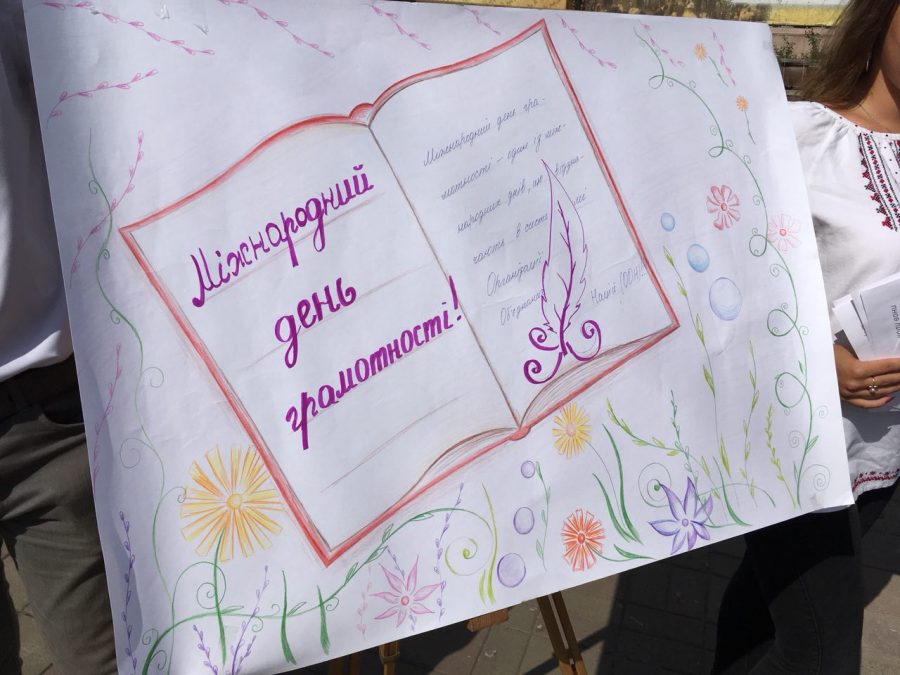 Міжнародний
день
грамотності!
Міжнародний день гра-
мотності – один із між-
народних днів, що відзна-
чають в системі
Організації
Об'єднаних Націй (ООН)!